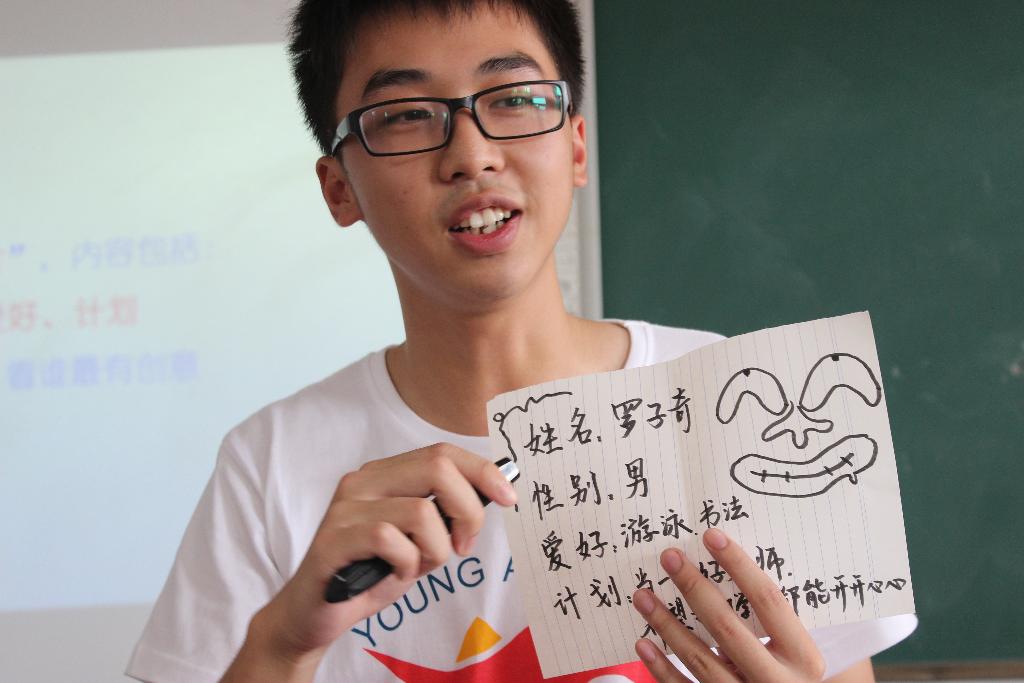 ”，内容包括：
好、计划
看谁最有创意
姓名：罗子奇
性别：男
爱好：游泳 书法
计划：当一 好 师.
想 学 都能开开心心
YOUNG A